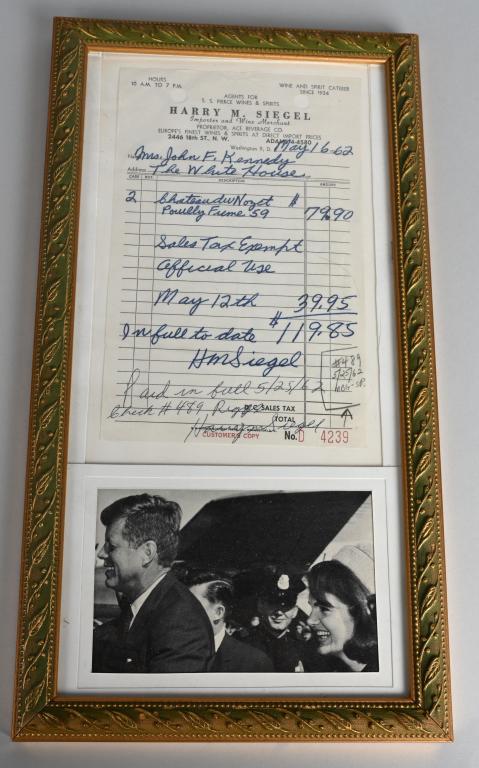 HOURS
10 A.M. TO 7 P.M.
WINE AND SPIRIT CATERER
SINCE 1934
AGENTS FOR
S. S. PIERCE WINES & SPIRITS
HARRY M. SIEGEL
Importer and Wine Merchant
PROPRIETOR, ACE BEVERAGE CO.
EUROPE'S FINEST WINES & SPIRITS AT DIRECT IMPORT PRICES
2446 18th ST., N. W. ADAMS 4-4580
Washington 9, D. May 16-62
Name Mrs. John F. Kennedy
Address The White House
CASE BOT. DESCRIPTION AMOUNT
2 Chateau du Nozet $
Pouilly Fume '59 79.90
Sales Tax Exempt
Official Use
May 12th 39.95
In full to date $ 119.85
HM Siegel
#489
5/25/62
Paid in full 5/25/62
Check # 489 Riggs D.C. SALES TAX
TOTAL
Siegel
CUSTOMER'S COPY No. D 4239